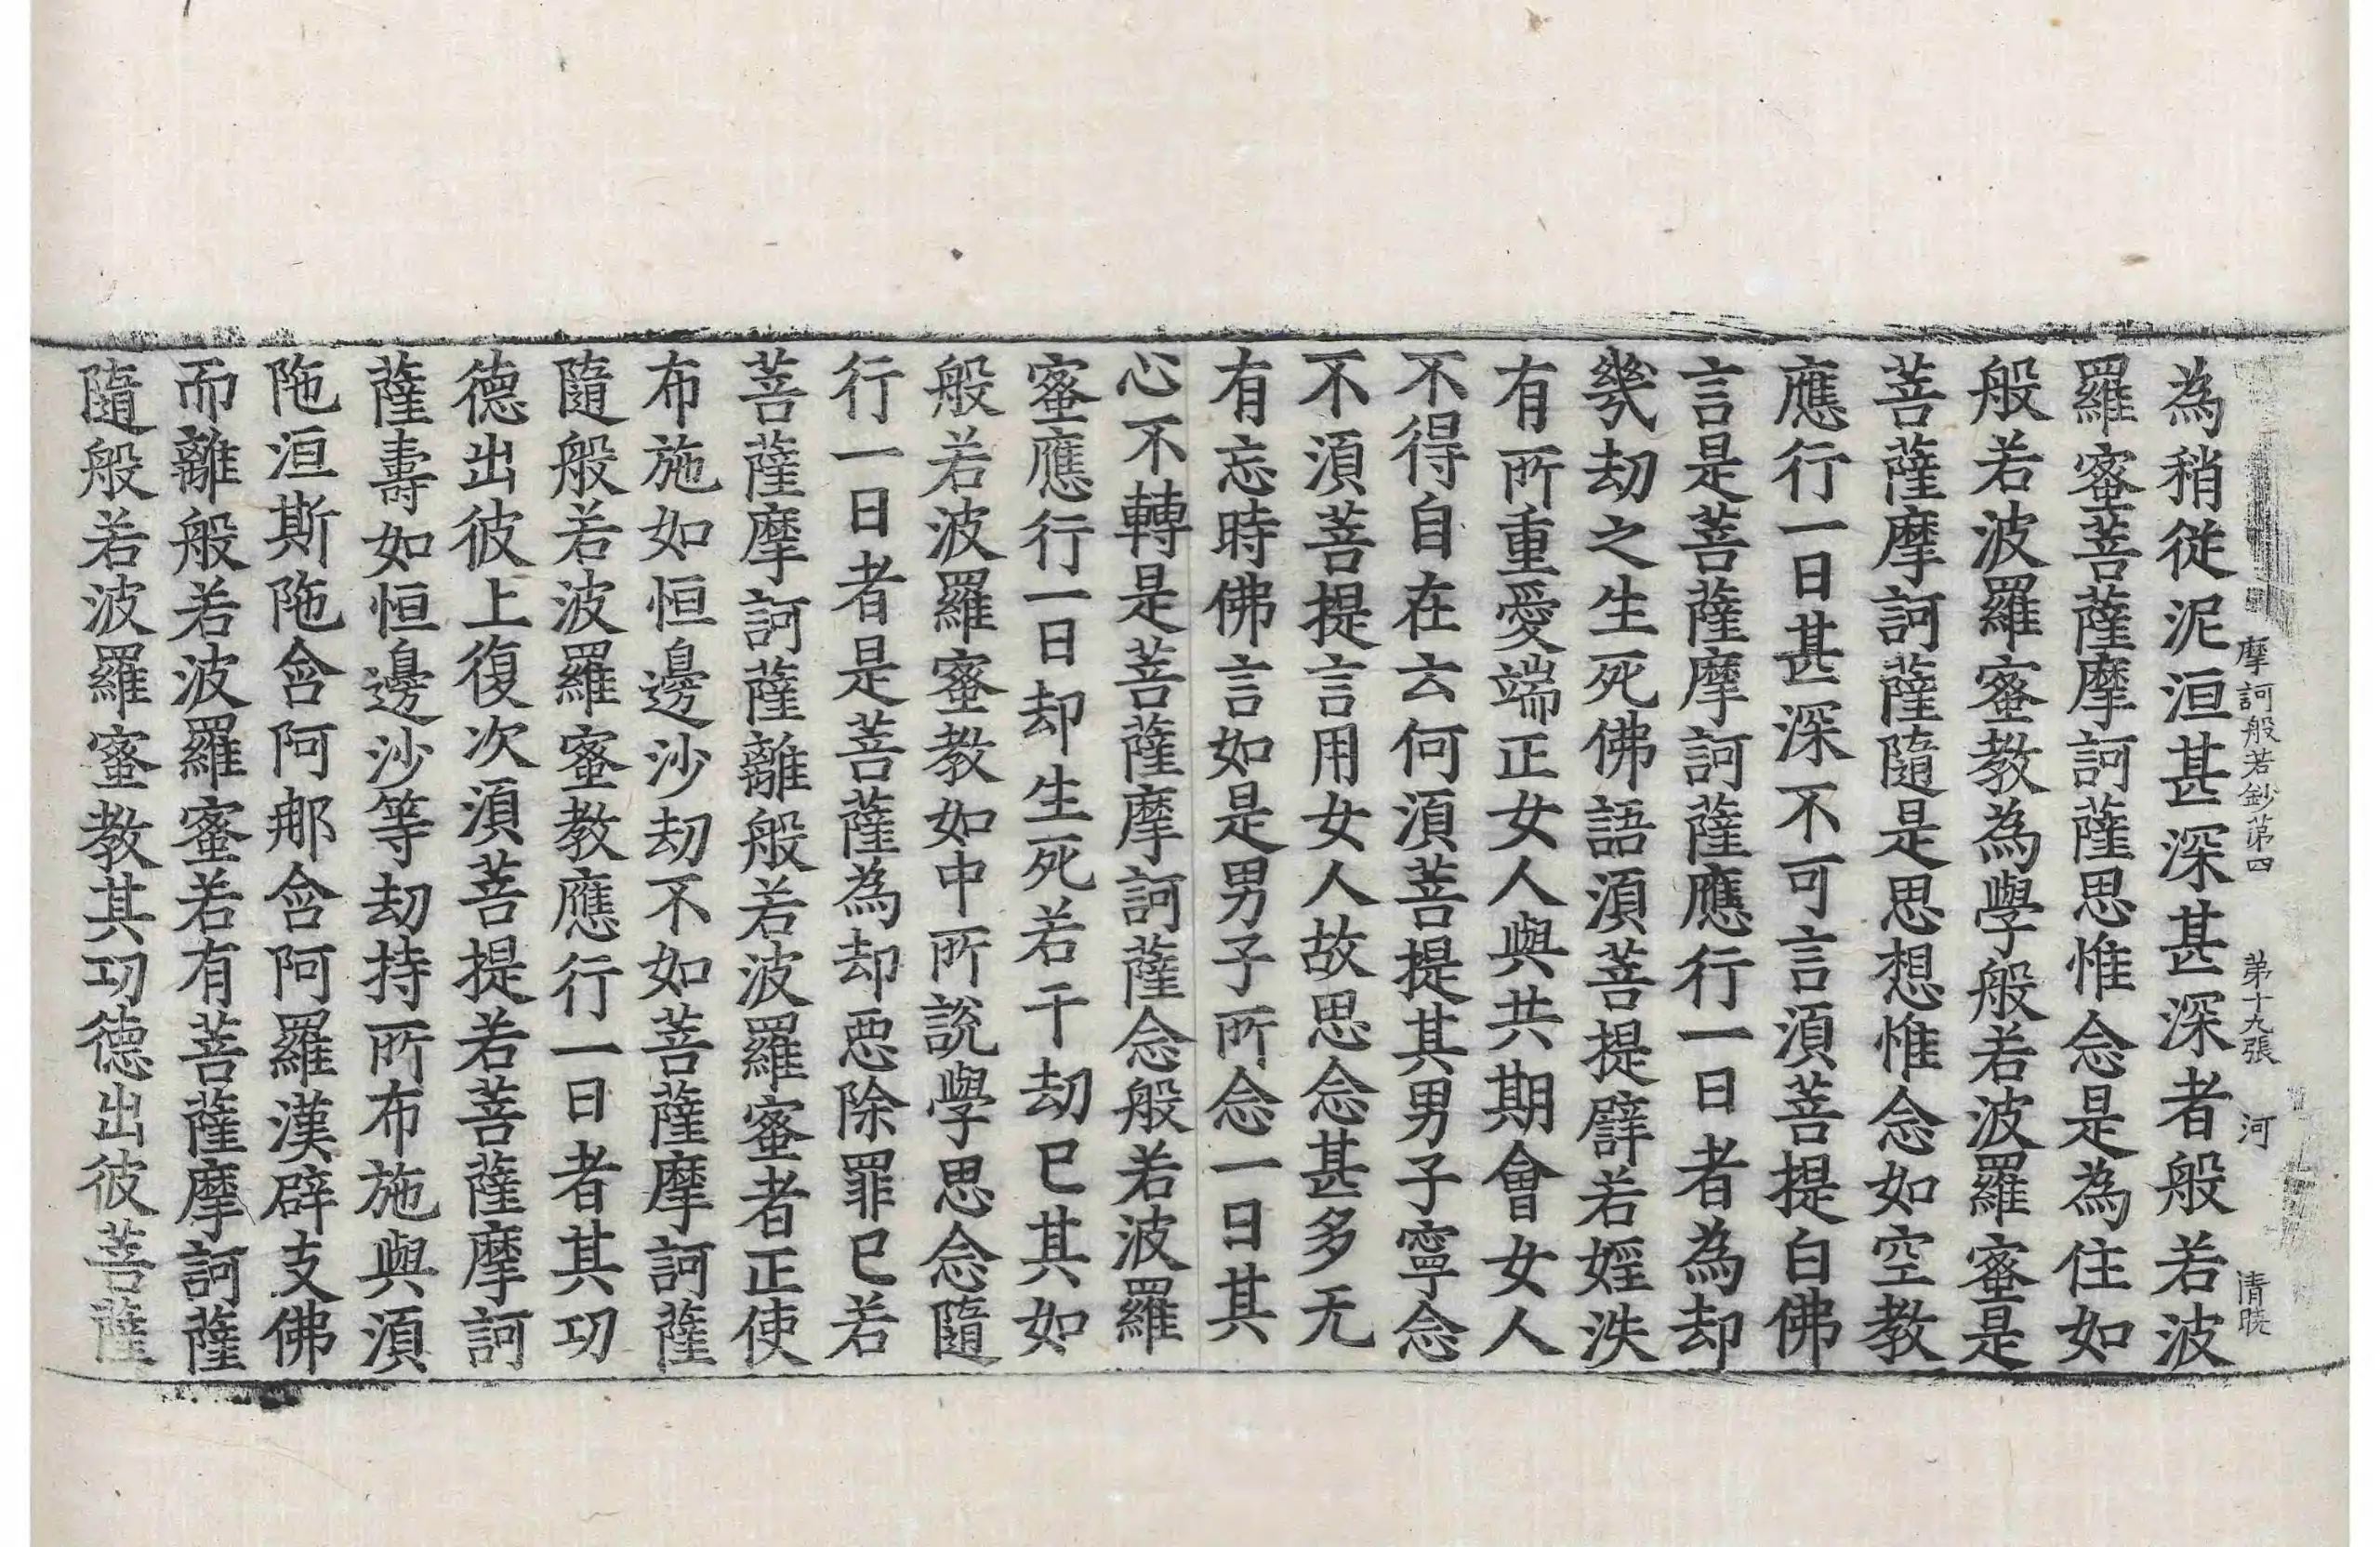 摩訶般若鈔苐四　第十九張　河　清暁
為稍從泥洹甚深甚深者般若波
羅蜜菩薩摩訶薩思惟念是為住如
般若波羅蜜教為學般若波羅蜜是
菩薩摩訶薩隨是思想惟念如空教
應行一日甚深不可言須菩提白佛
言是菩薩摩訶薩應行一日者為却
幾劫之生死佛語須菩提譬若婬泆
有所重愛端正女人與共期會女人
不得自在云何須菩提其男子寧念
不須菩提言用女人故思念甚多无
有忘時佛言如是男子所念一日其
心不轉是菩薩摩訶薩念般若波羅
蜜應行一日却生死若干劫已其如
般若波羅蜜教如中所說學思念隨
行一日者是菩薩為却惡除罪已若
菩薩摩訶薩離般若波羅蜜者正使
布施如恒邊沙劫不如菩薩摩訶薩
隨般若波羅蜜教應行一日者其功
德出彼上復次須菩提若菩薩摩訶
薩壽如恒邊沙等劫持所布施與須
陁洹斯陁含阿那含阿羅漢辟支佛
而離般若波羅蜜若有菩薩摩訶薩
隨般若波羅蜜教其功德出彼菩薩